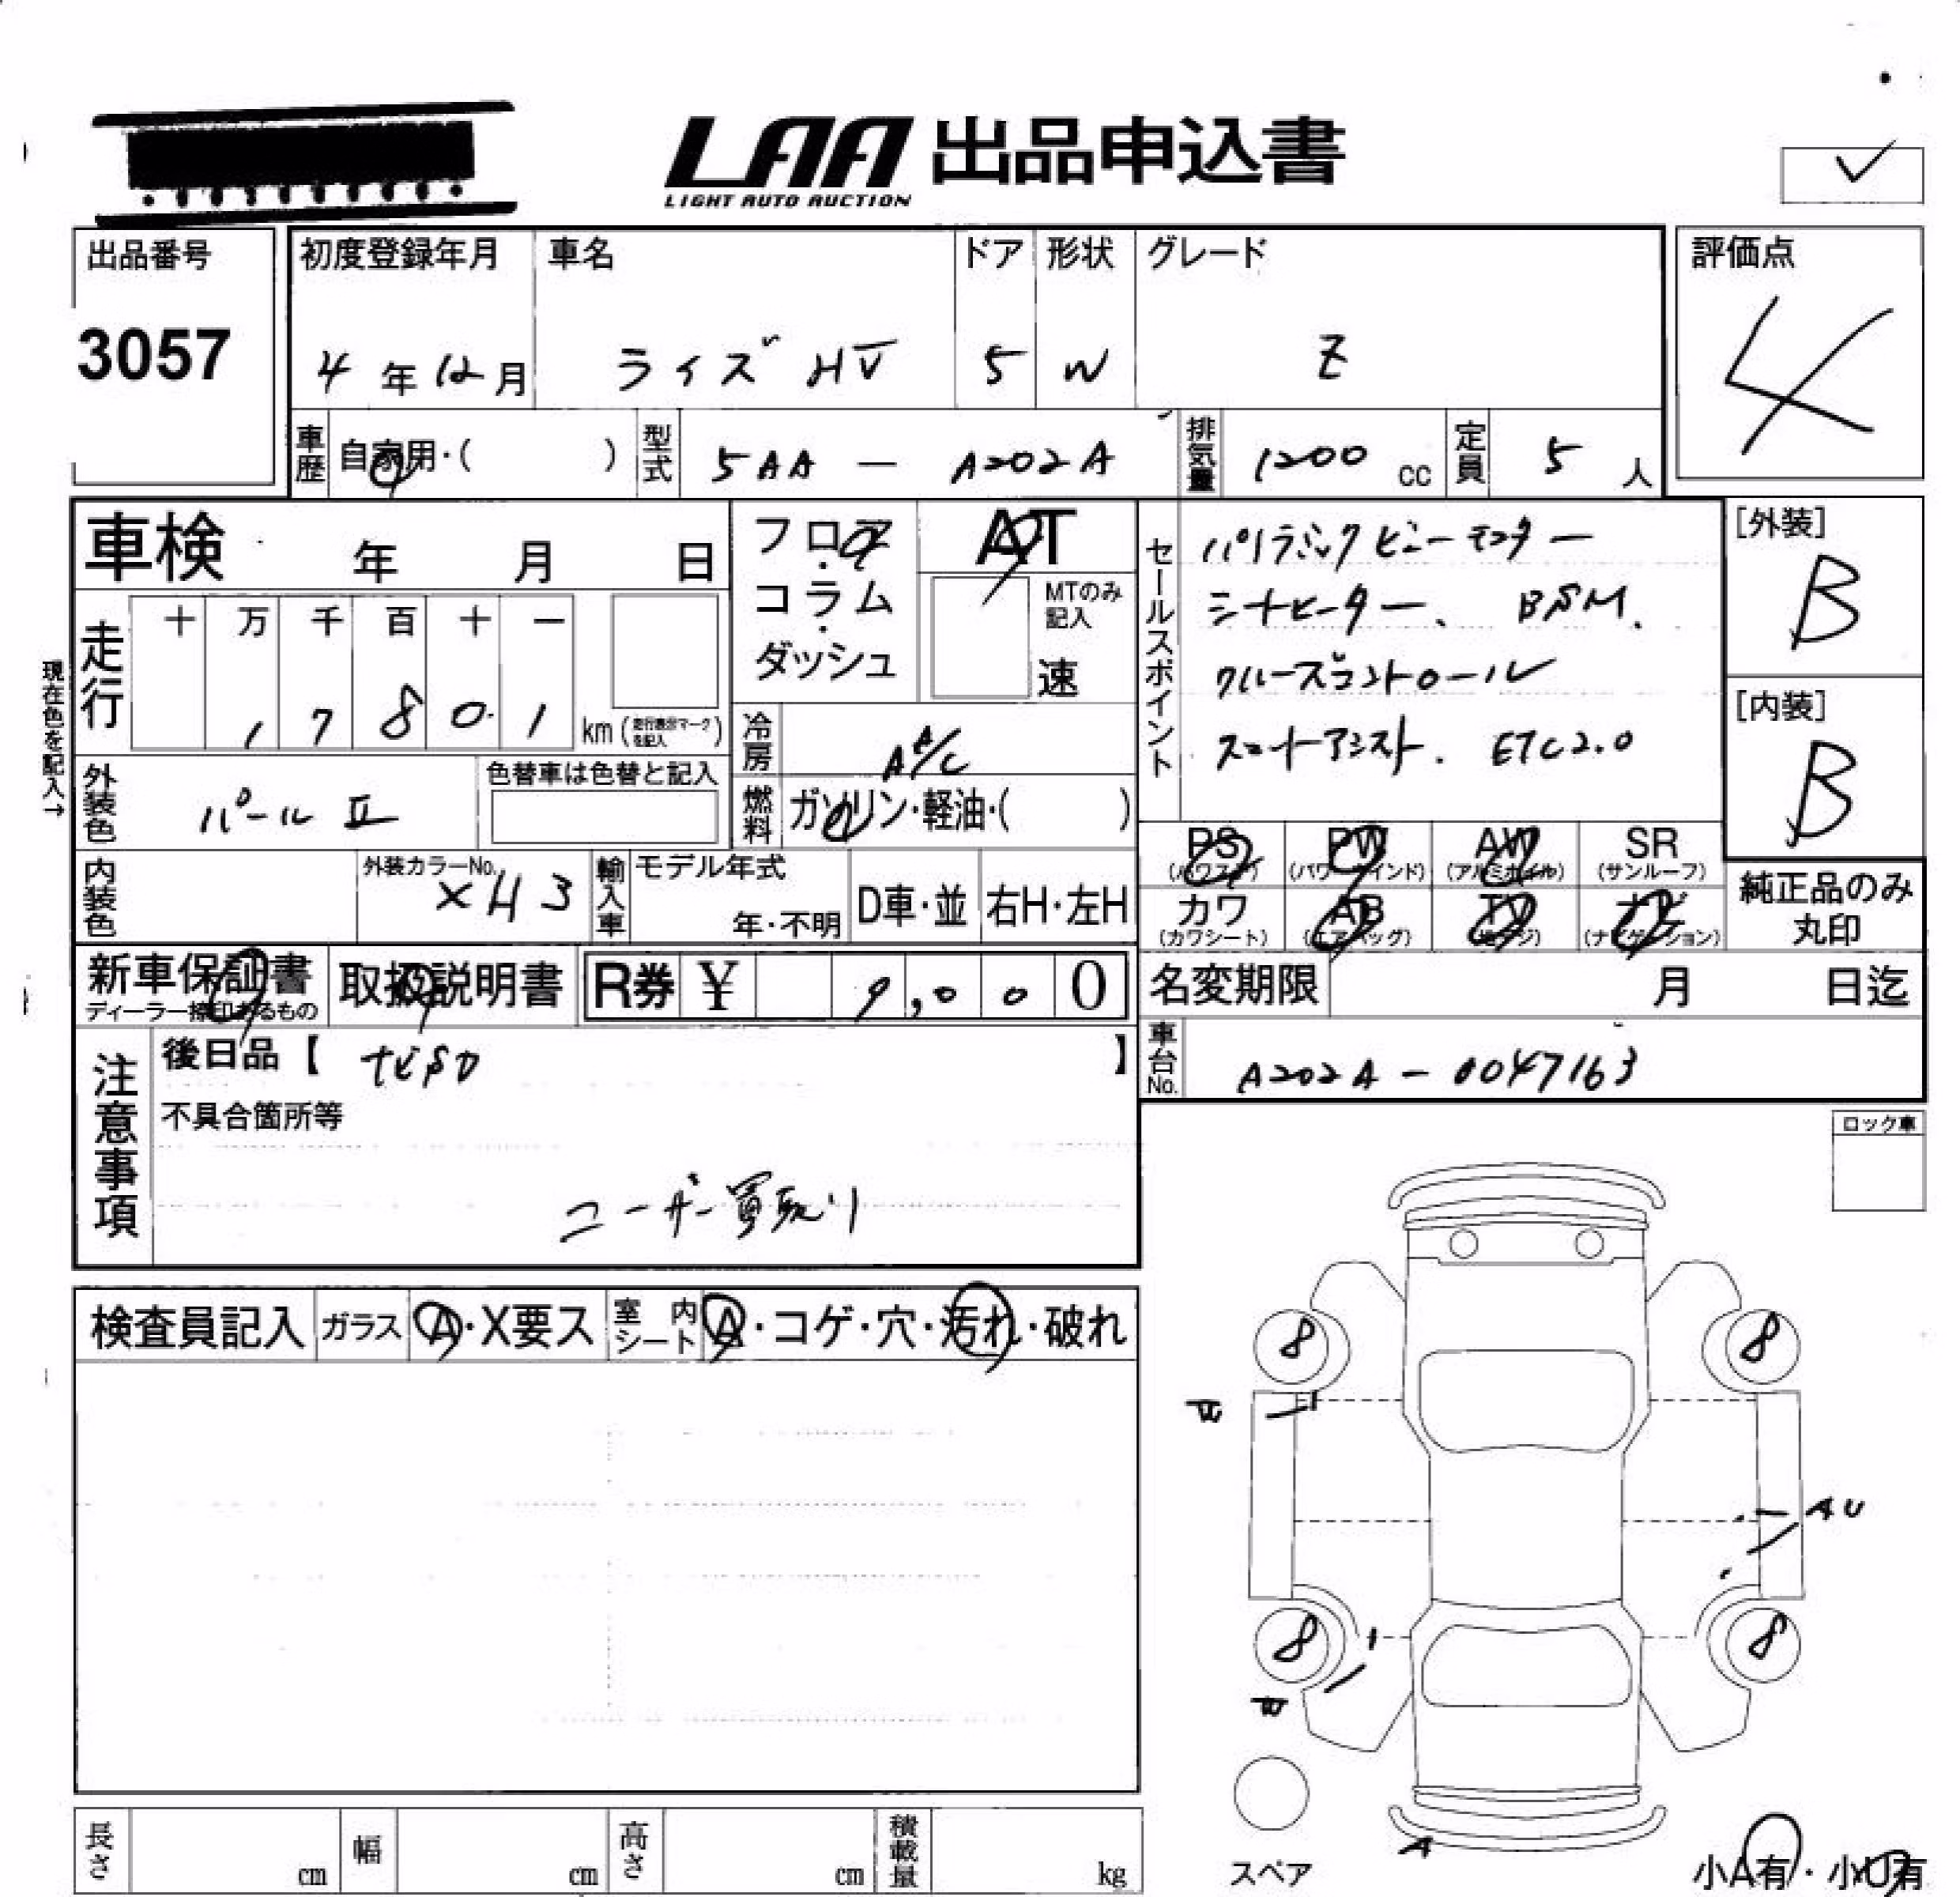 LAA 出品申込書
LIGHT AUTO AUCTION
出品番号
3057
初度登録年月 車名 ドア 形状 グレード
4年12月 ライズ HV 5 W Z
評価点
4
車歴 自家用・( ) 型式 5AA － A202A 排気量 1200 cc 定員 5 人
車検 年 月 日
フロア・コラム・ダッシュ
AT
MTのみ記入
速
セールスポイント
パノラミックビューモニター
シートヒーター、BSM.
クルーズコントロール
スマートアシスト. ETC2.0
[外装]
B
[内装]
B
現在色を記入→
走行 十 万 千 百 十 一
1 7 8 0 1 km (走行表示マークを記入)
冷房 AA/C
燃料 ガソリン・軽油・( )
外装色 パール II 色替車は色替と記入
内装色 外装カラーNo. XH3
輸入車 モデル年式 年・不明 D車・並 右H・左H
PS (パワステ) PW (パワーウインド) AW (アルミホイル) SR (サンルーフ)
カワ (カワシート) AB (エアバッグ) TV (テレビ) ナビ (ナビゲーション)
純正品のみ丸印
新車保証書 ディーラー捺印あるもの
取扱説明書
R券 ¥ 9,000
名変期限 月 日迄
車台No. A202A － 0047163
注意事項
後日品【 ナビSD 】
不具合箇所等
ユーザー買取り
ロック車
検査員記入 ガラス A・X要ス 室内シート A・コゲ・穴・汚れ・破れ
8 8
AU
8 8
A
スペア
小A有・小U有
長さ cm 幅 cm 高さ cm 積載量 kg